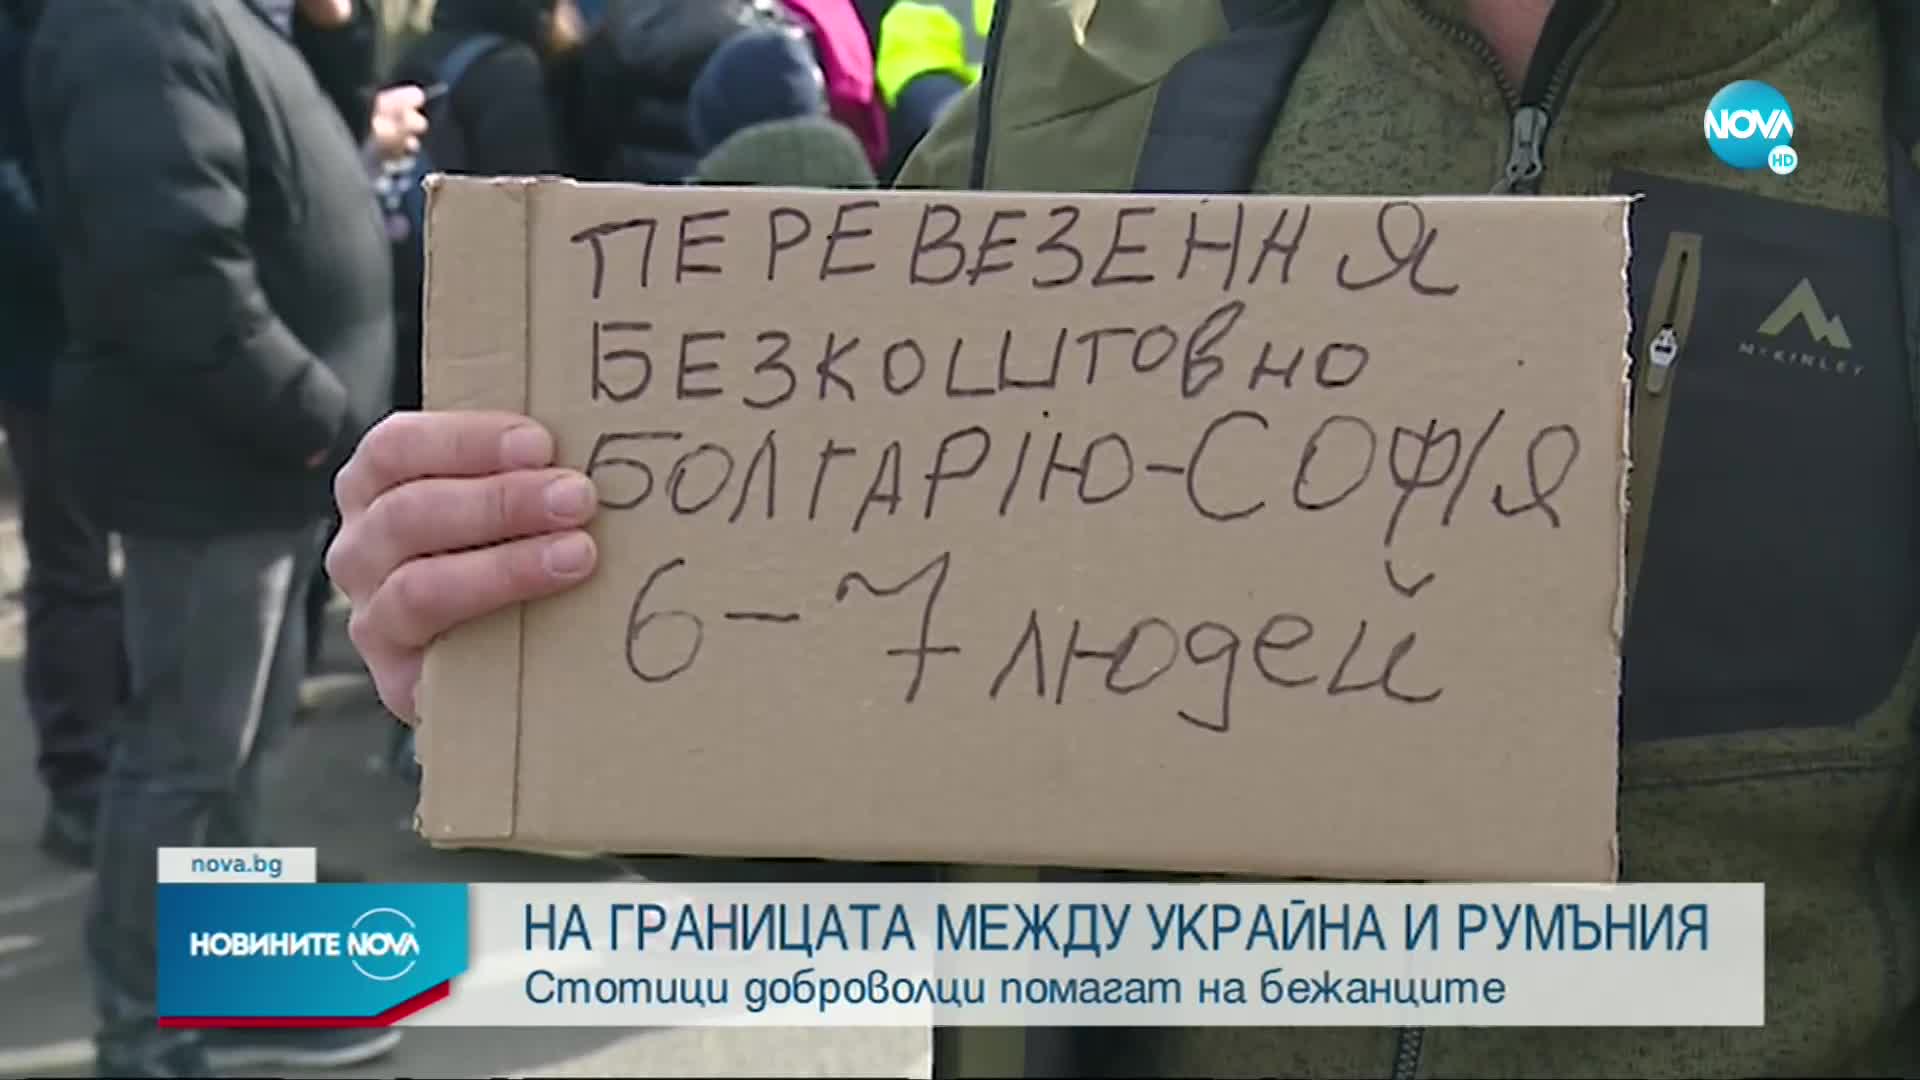 NOVA
HD
ПЕРЕВЕЗЕННЯ
БЕЗКОШТОВНО
БОЛГАРІЮ-СОФІЯ
6-7 людей
McKINLEY
nova.bg
НОВИНИТЕ NOVA
НА ГРАНИЦАТА МЕЖДУ УКРАЙНА И РУМЪНИЯ
Стотици доброволци помагат на бежанците